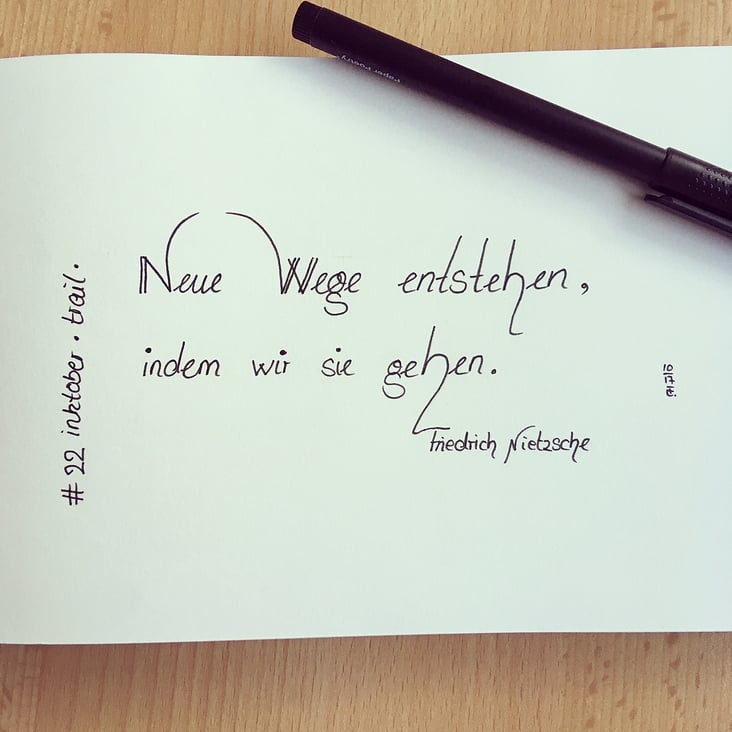 Neue Wege entstehen,
indem wir sie gehen.
Friedrich Nietzsche
# 22 inktober · trail.